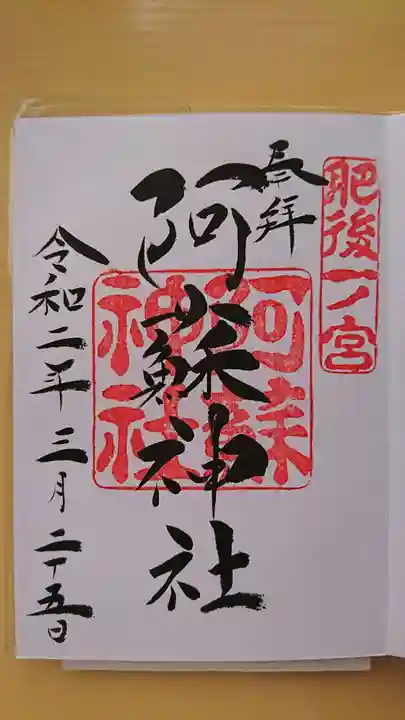 肥後一ノ宮
奉拝
阿蘇神社
阿蘇
神社
令和二年三月二十五日